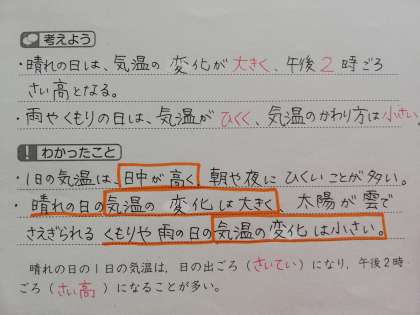 考えよう
・晴れの日は、気温の変化が大きく、午後2時ごろ
さい高となる。
・雨やくもりの日は、気温がひくく、気温のかわり方は小さい。
わかったこと
・1日の気温は、日中が高く、朝や夜にひくいことが多い。
・晴れの日の気温の変化は大きく、太陽が雲で
さえぎられるくもりや雨の日の気温の変化は小さい。
晴れの日の1日の気温は，日の出ごろ（さいてい）になり，午後2時
ごろ（さい高）になることが多い。